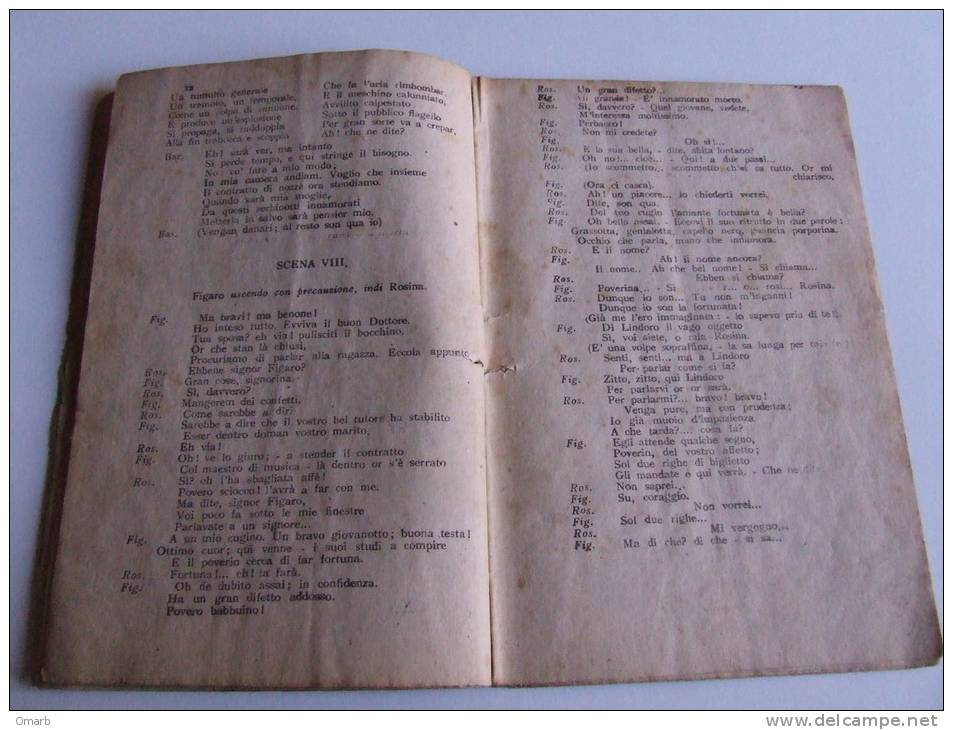 12
Un tumulto generale
Un tremuoto, un temporale,
Come un colpo di cannone,
E produce un'esplosione
Si propaga, si raddoppia
Alla fin trabocca e scoppia
Che fa l'aria rimbombar,
E il meschino calunniato,
Avvilito calpestato
Sotto il pubblico flagello
Per gran sorte va a crepar,
Ah! che ne dite?
Bar. Eh! sarà ver, ma intanto
Si perde tempo, e qui stringe il bisogno.
No: vo' fare a mio modo;
In mia camera andiam. Voglio che insieme
Il contratto di nozze ora stendiamo.
Quando sarà mia moglie,
Da questi zerbinotti innamorati
Metterla in salvo sarà pensier mio.
Bas. (Vengan danari; al resto son qua io)
SCENA VIII,
Figaro uscendo con precauzione, indi Rosina.
Fig. Ma bravi! ma benone!
Ho inteso tutto. Evviva il buon Dottore.
Tua sposa? eh via! pulisciti il bocchino,
Or che stan là chiusi,
Procuriamo di parlar alla ragazza. Eccola appunto
Ros. Ebbene signor Figaro?
Fig. Gran cose, signorina.
Ros. Sì, davvero?
Fig. Mangerem dei confetti.
Ros. Come sarebbe a dir?
Fig. Sarebbe a dire che il vostro bel tutore ha stabilito
Esser dentro doman vostro marito,
Ros. Eh via!
Fig. Oh! ve lo giuro; - a stender il contratto
Col maestro di musica - là dentro or s'è serrato
Ros. Sì? oh l'ha sbagliata affè!
Povero sciocco! l'avrà a far con me.
Ma dite, signor Figaro,
Voi poco fa sotto le mie finestre
Parlavate a un signore...
Fig. A un mio cugino. Un bravo giovanotto; buona testa!
Ottimo cuor; qui venne - i suoi studi a compire
E il poverio cerca di far fortuna.
Ros. Fortuna!... eh! la farà.
Fig. Oh ne dubito assai; in confidenza.
Ha un gran difetto addosso.
Povero babbuino!
Ros. Un gran difetto?...
Fig. Ah grande! - E' innamorato morto.
Ros. Sì, davvero? - Quel giovane, vedete,
M'interessa moltissimo.
Fig. Perbacco!
Ros. Non mi credete?
Fig. Oh sì!...
Ros. E la sua bella, - dite, abita lontano?
Fig. Oh no!... cioè... - Qui! a due passi...
Ros. (Io scommetto... scommetto ch'ei sa tutto. Or mi
chiarisco,
Fig. (Ora ci casca).
Ros. Ah! un piacere... io chiederti vorrei.
Fig. Dite, son qua.
Ros. Del tuo cugin l'amante fortunata è bella?
Fig. Oh bella assai. Eccovi il suo ritratto in due parole:
Grassotta, genialotta, capello nero, guancia porporina.
Occhio che parla, mano che innamora.
Ros. E il nome?
Fig. Ah! il nome ancora?
Il nome.. Ah che bel nome! - Si chiama...
Ros. Ebben si chiama?
Fig. Poverina... - Si r... o... rosi... Rosina.
Ros. Dunque io son... Tu non m'inganni!
Dunque io son la fortunata!
(Già me l'ero immaginata: - lo sapevo pria di te).
Fig. Di Lindoro il vago oggetto
Sì, voi siete, o mia Rosina.
(E' una volpe sopraffina, - la sa lunga per
Ros. Senti, senti... ma a Lindoro
Per parlar come si fa?
Fig. Zitto, zitto, qui Lindoro
Per parlarvi or or sarà.
Ros. Per parlarmi?... bravo! bravo!
Venga pure, ma con prudenza;
Io già muoio d'impazienza
A che tarda?.... cosa fa?
Fig. Egli attende qualche segno,
Poverin, del vostro affetto;
Sol due righe di biglietto
Gli mandate e qui verrà. - Che ne dite?
Ros. Non saprei...
Fig. Su, coraggio.
Ros. Non vorrei...
Fig. Sol due righe...
Ros. Mi vergogno,..
Fig. Ma di che? di che - si sa...
Omarb
www.delcampe.net